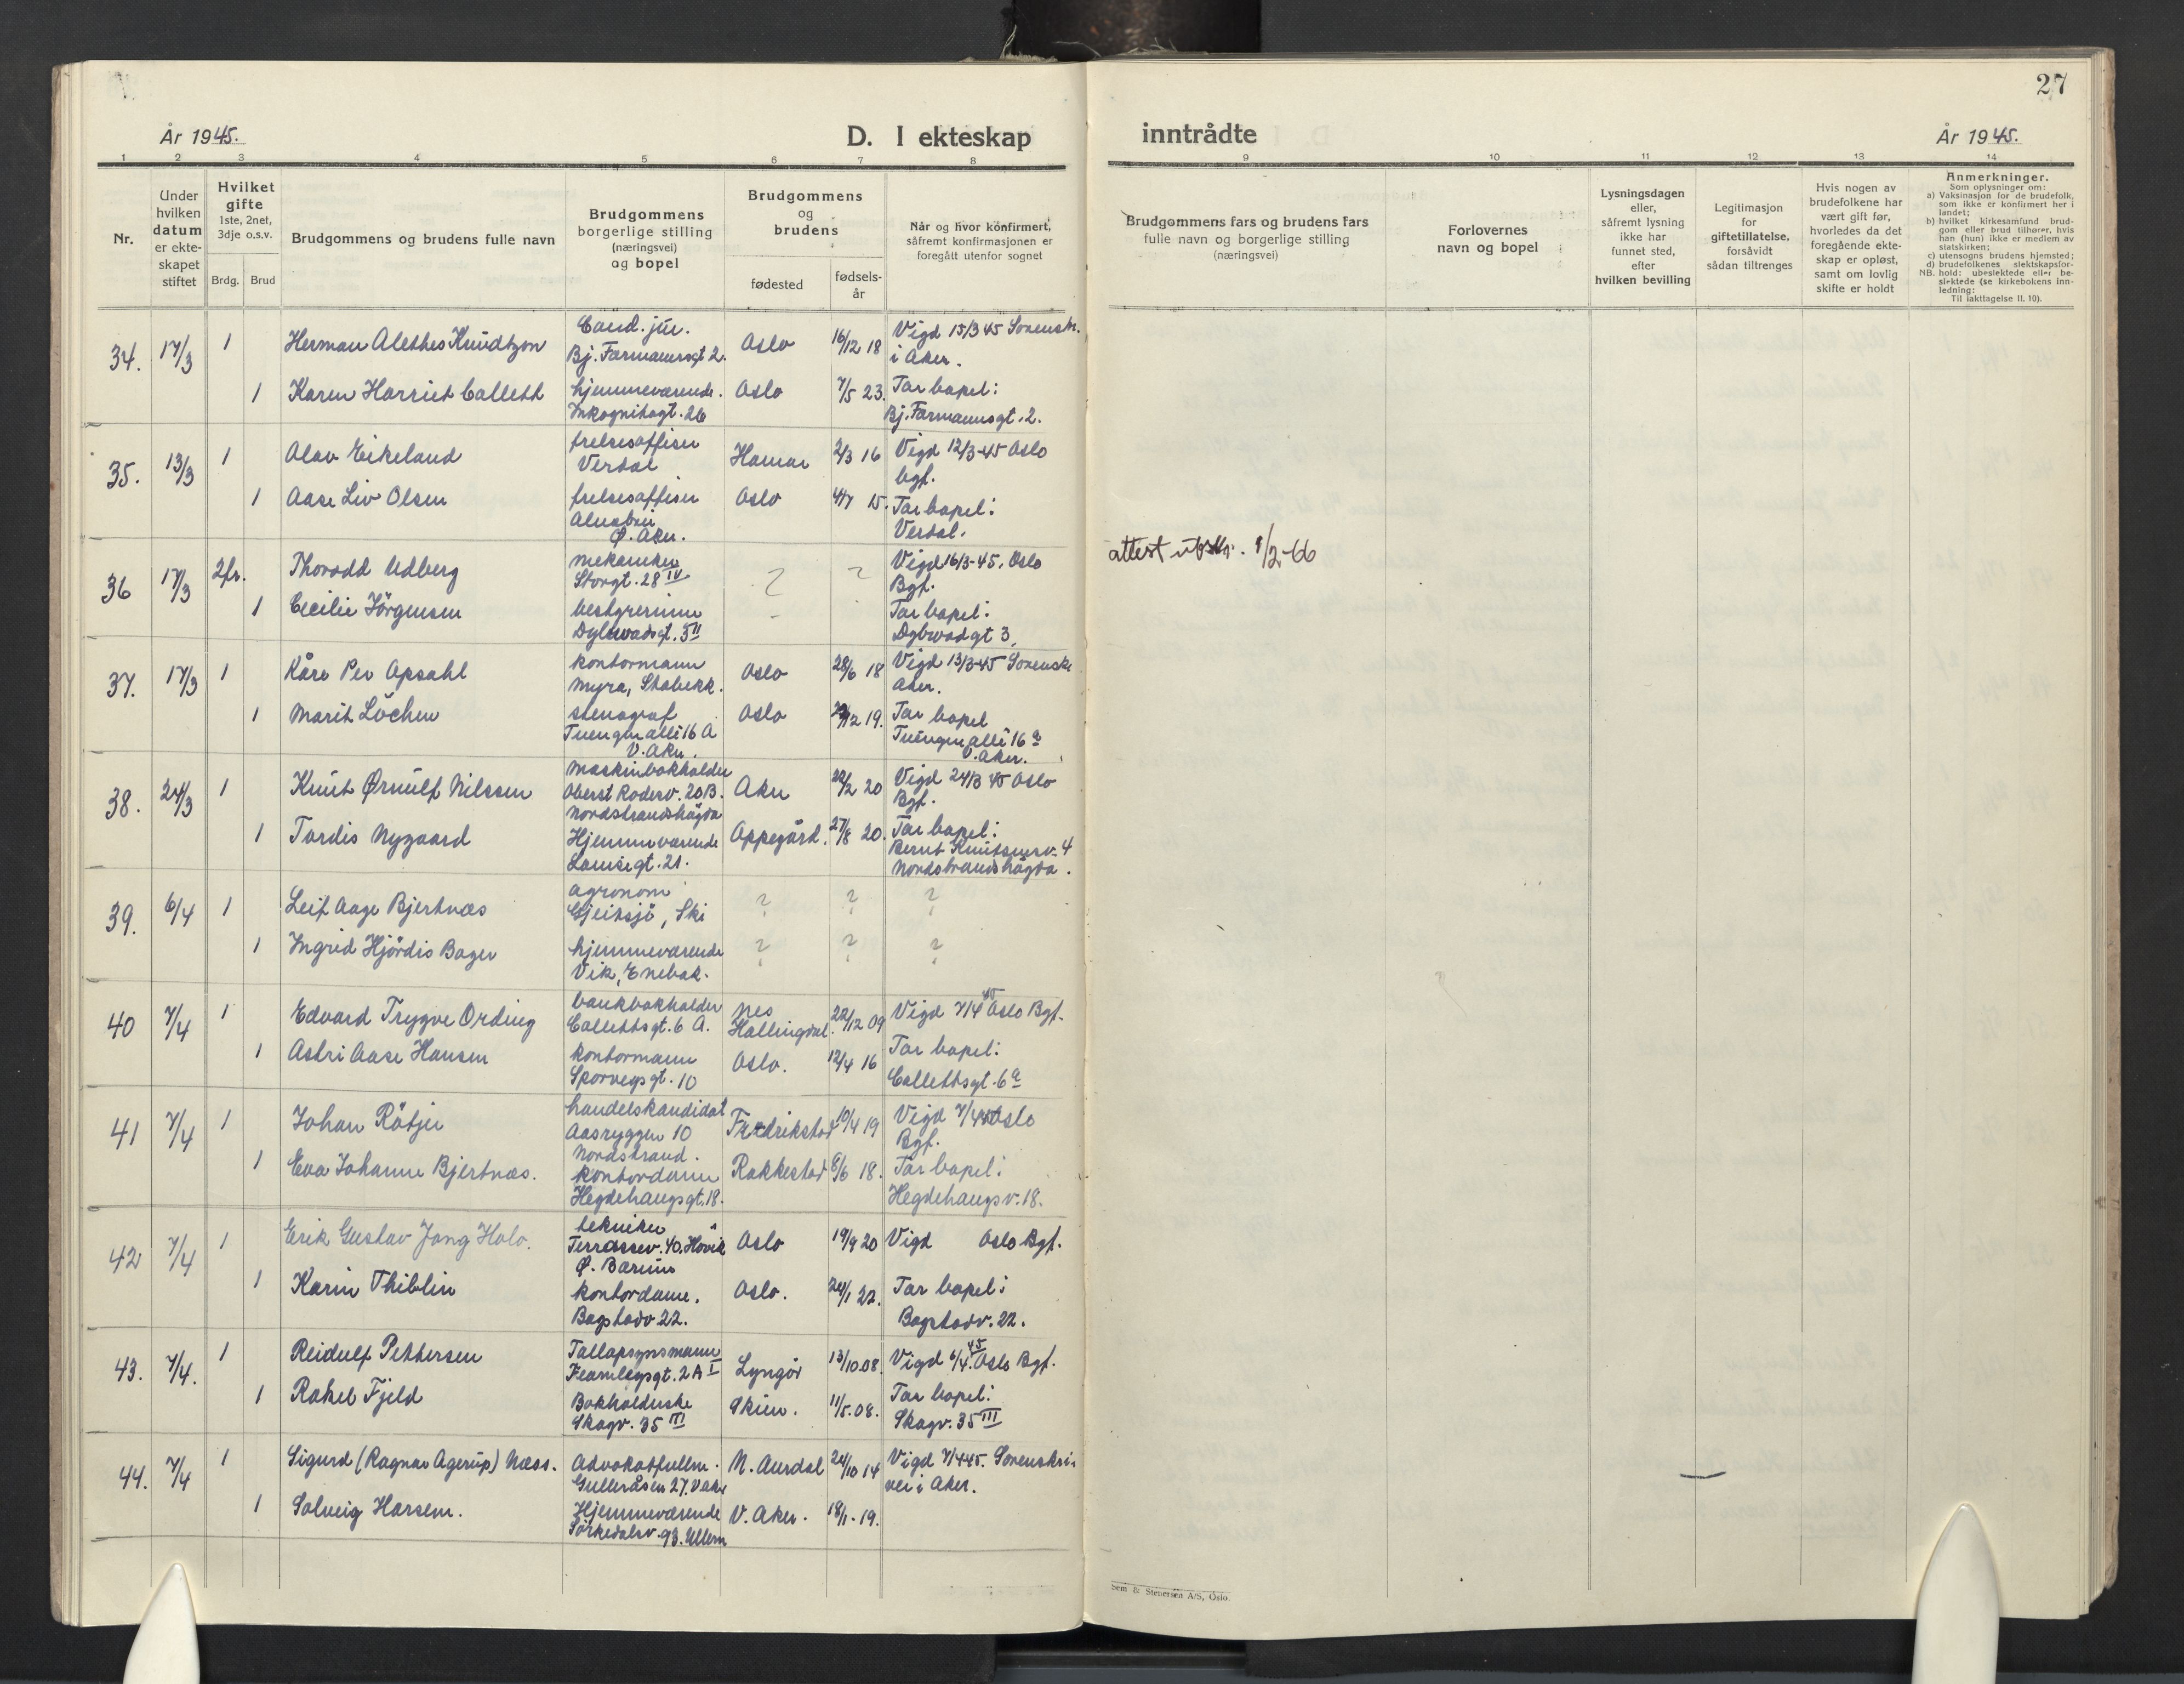 27
År 1945.
D. I ekteskap
inntrådte
År 1945.
1 2 3 4 5 6 7 8 9 10 11 12 13 14
Nr.
Under
hvilken
datum
er ekte-
skapet
stiftet
Hvilket
gifte
1ste, 2net,
3dje o.s.v.
Brdg. Brud
Brudgommens og brudens fulle navn
Brudgommens
borgerlige stilling
(næringsvei)
og bopel
Brudgommens
og
brudens
fødested
fødsels-
år
Når og hvor konfirmert,
såfremt konfirmasjonen er
foregått utenfor sognet
Brudgommens fars og brudens fars
fulle navn og borgerlige stilling
(næringsvei)
Forlovernes
navn og bopel
Lysningsdagen
eller,
såfremt lysning
ikke har
funnet sted,
efter
hvilken bevilling
Legitimasjon
for
giftetillatelse,
forsåvidt
sådan tiltrenges
Hvis nogen av
brudefolkene har
vært gift før,
hvorledes da det
foregående ekte-
skap er opløst,
samt om lovlig
skifte er holdt
Anmerkninger.
Som oplysninger om:
a) Vaksinasjon for de brudefolk,
som ikke er konfirmert her i
landet;
b) hvilket kirkesamfund brud-
gom eller brud tilhører, hvis
han (hun) ikke er medlem av
statskirken;
c) utensogns brudens hjemsted;
d) brudefolkenes slektskapsfor-
NB. hold: ubeslektede eller be-
slektede (se kirkebokens inn-
ledning:
Til iakttagelse II. 10).
34. 17/3 1 Herman Alethes Knudtzon Cand. jur. Oslo 16/12 18 Vigd 15/3 45 Sorenskr.
Bj. Farmannsgt 2. i Aker.
1 Karen Harriet Collett hjemmeværende. Oslo 7/5 23. Tar bopel:
Inkognitogt. 26 Bj. Farmannsgt. 2.
35. 13/3 1 Olav Eikeland frelsesoffiser Hamar 2/3 16 Vigd 12/3-45 Oslo
Verdal bgf.
1 Aase Liv Olsen frelsesoffiser Oslo 4/7 15. Tar bopel:
Alnabru Verdal.
Ø. Aker.
attest utskr. 1/2-66
36 17/3 2 fr. Thorodd Udberg mekaniker ? ? Vigd 16/3-45. Oslo
Storgt. 28 IV Bgf.
1 Cecilie Jörgensen bestyrerinne - Tar bopel:
Dybwadsgt. 3 II Dybwadgt 3.
37. 17/3 1 Kåre Per Opsahl kontormann Oslo 28/6 18 Vigd 13/3-45 Sorenskr
Myra, Stabekk. Aker.
1 Marit Löchen stenograf Oslo 12 19. Tar bopel
Tuengen allé 16 A Tuengen allé 16 a
V. Aker. V. Aker.
38. 24/3 1 Knut Ørnulf Nilssen Maskinbokholder Aker 22/2 20 Vigd 24/3 45 Oslo
Oberst Rodesv. 20 B. Bgf.
Nordstrandshögda
1 Tordis Nygaard Hjemmeværende Oppegård. 27/8 20. Tar bopel:
Louisegt. 21. Bernt Knutsensv. 4
Nordstrandshögda.
39. 6/4 1 Leif Aage Bjertnæs agronom ? ? ?
Gjeitsjö, Ski
1 Ingrid Hjördis Bager hjemmeværende ? ? ?
Vik, Enebak.
40 7/4 1 Edvard Trygve Ording bankbokholder Nes 22/12 09 Vigd 7/4 45 Oslo Bgf.
Collettsgt. 6 A. Hallingdal.
1 Astri Aase Hansen kontormann Oslo. 12/4 16 Tar bopel:
Sporvegsgt. 10 Collettsgt. 6 a
41 7/4 1 Johan Rötjer handelskandidat Fredrikstad 10/4 19 Vigd 7/4 45 Oslo
Aasryggen 10 Bgf.
Nordstrand.
1 Eva Johanne Bjertnæs. kontordame Rakkestad 8/6 18. Tar bopel:
Hegdehaugsgt. 18. Hegdehaugsv. 18.
42 7/4 1 Erik Gustav Jang Holo. tekniker Oslo 19/9 20 Vigd Oslo Bgf.
Terrassev. 40. Hövik
Ø. Bærum
1 Karin Thiblin kontordame. Oslo. 24/1 22. Tar bopel:
Bogstadv 22. Bogstadv. 22.
43. 7/4. 1 Reidulf Pettersen Tollopsynsmann Lyngör 13/10.08. Vigd 6/4. 45 Oslo Bgf.
Fearnleysgt. 2 A I
1 Rakel Fjeld Bokholderske Skien. 11/5.08. Tar bopel:
Skogv. 35 III Skogv. 35 III
44. 7/4 1 Sigurd (Ragnar Agerup) Næss. Advokatfullm. N. Aurdal 24/10 14 Vigd 7/4 45. Sorenskri-
Gulleråsen 27. V. Aker ver i Aker.
1 Solveig Harsem. Hjemmeværende V. Aker. 18/1-19.
Sörkedalsv. 93. Ullern
Sem & Stenersen A/S, Oslo.